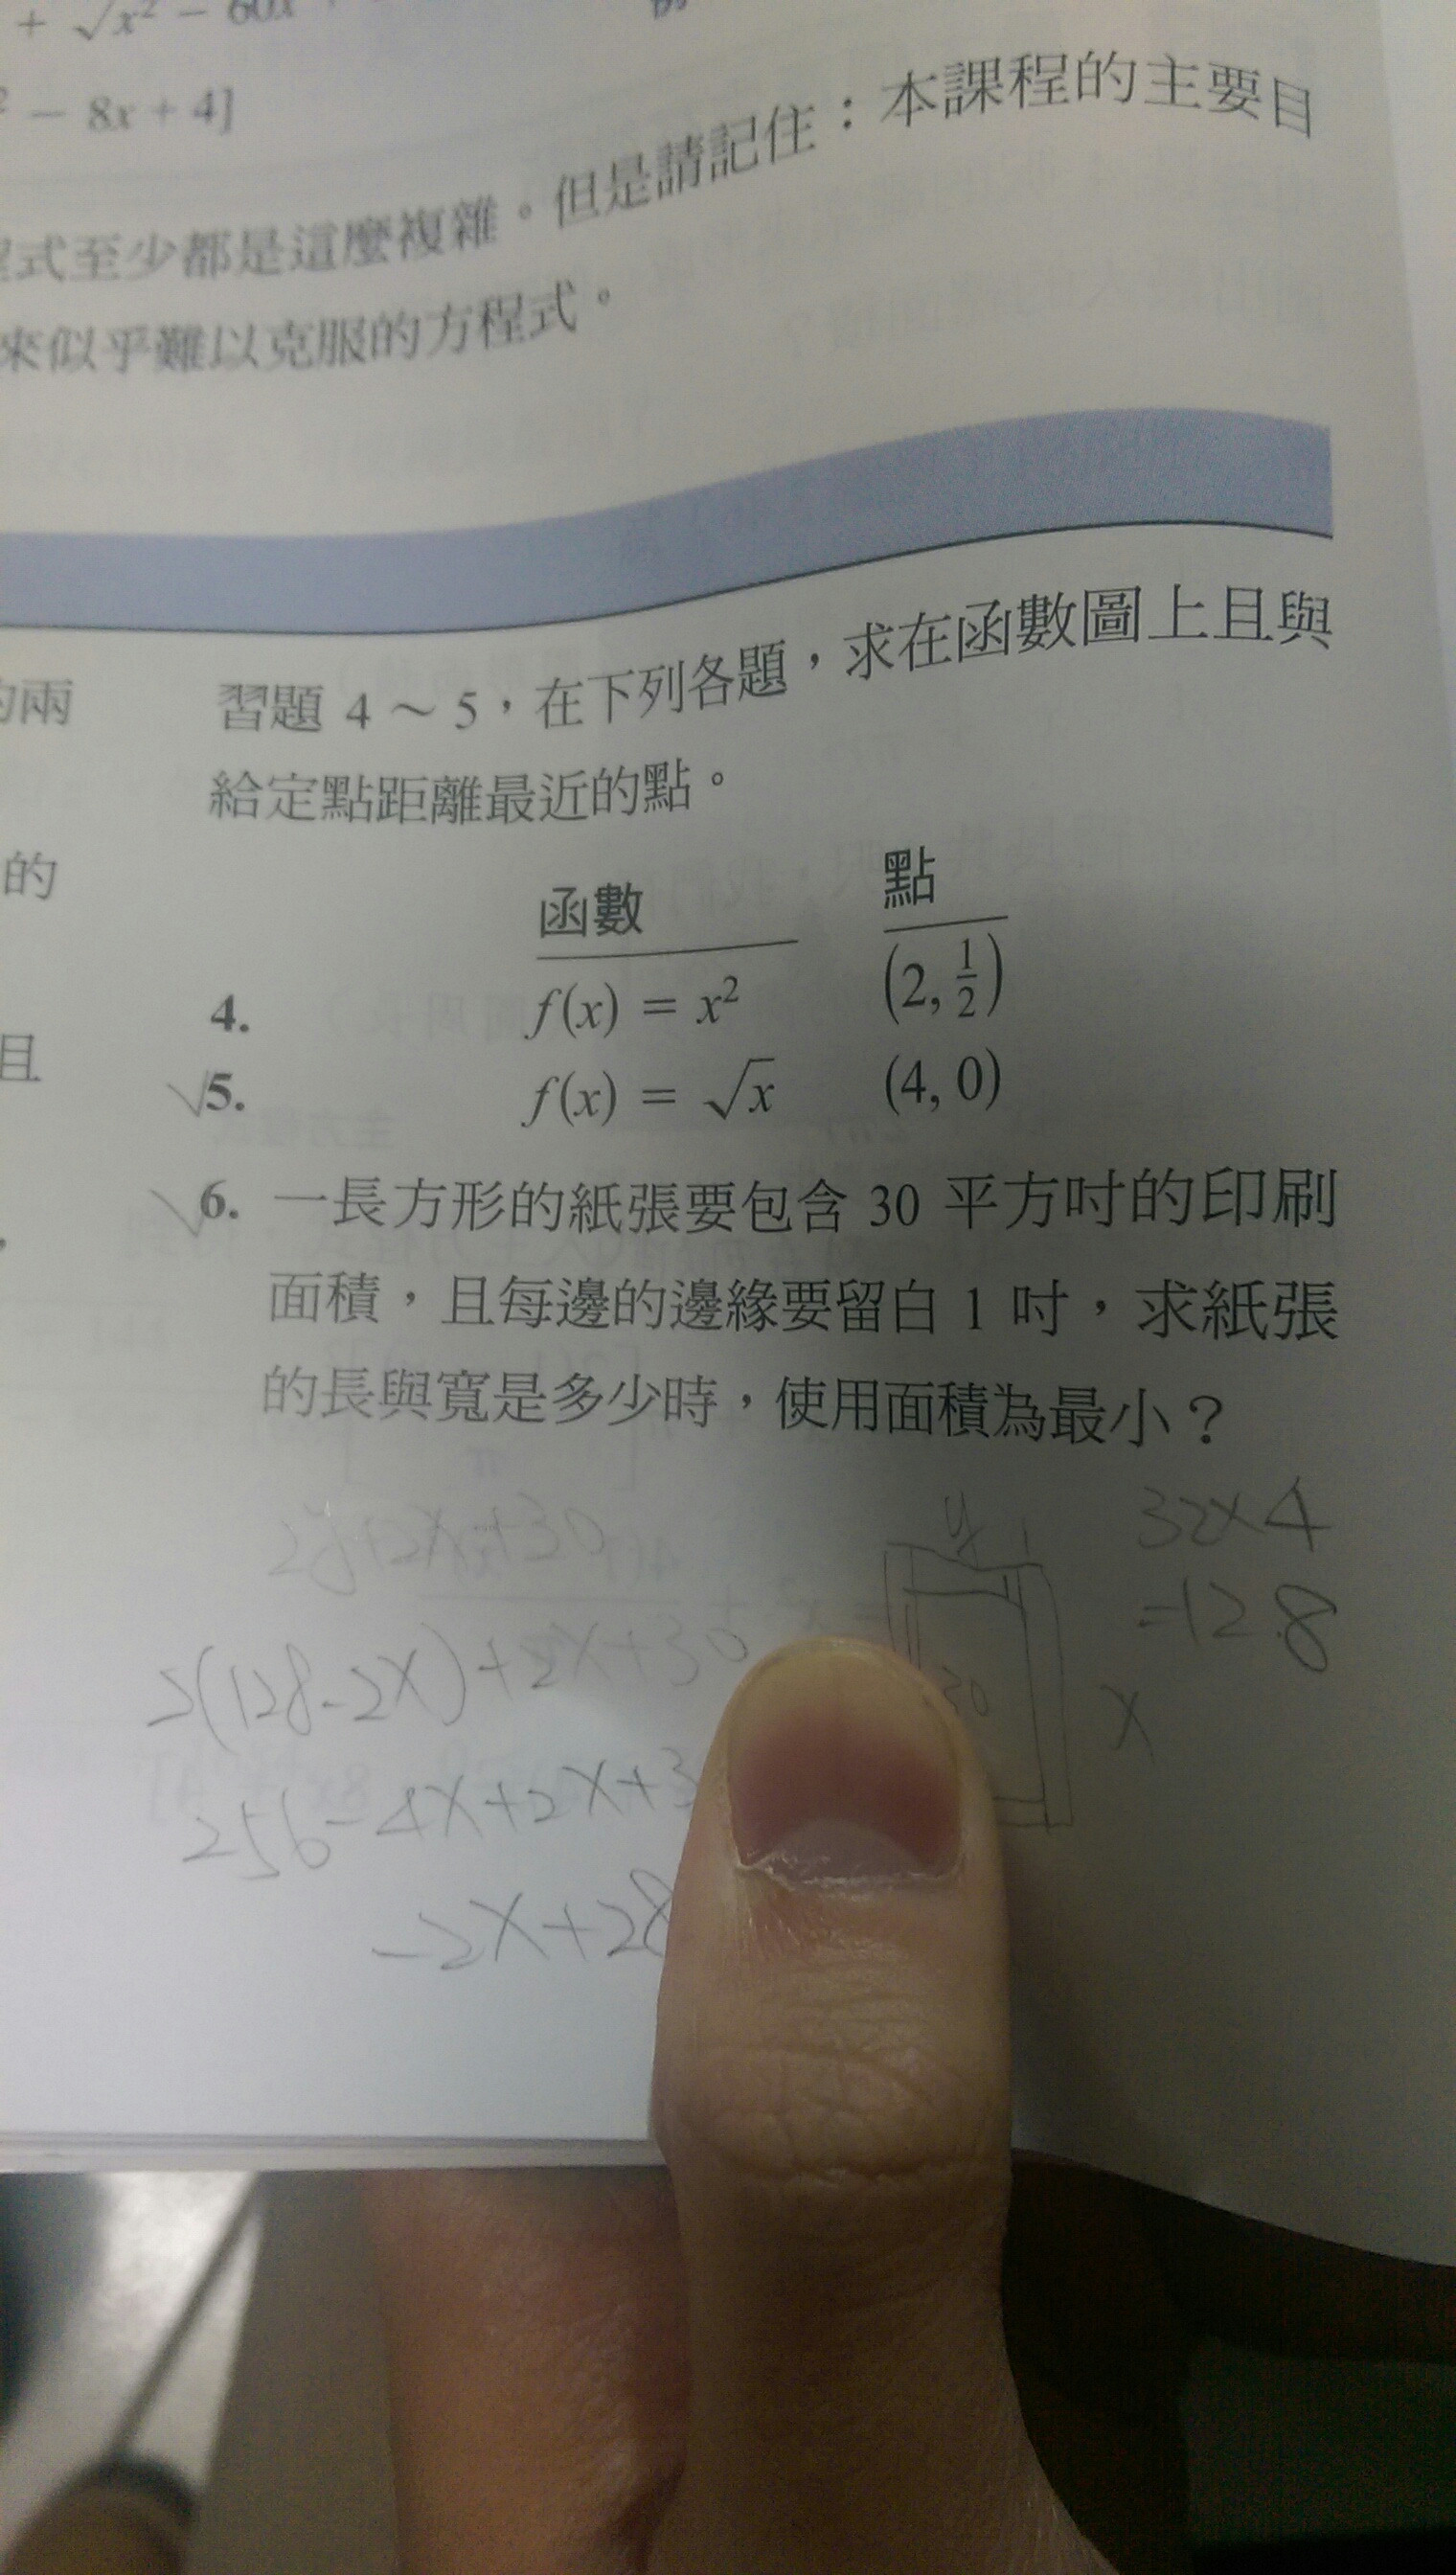 + √x² − 60x
− 8x + 4]
程式至少都是這麼複雜。但是請記住：本課程的主要目
來似乎難以克服的方程式。
的兩
的
且
習題 4～5，在下列各題，求在函數圖上且與
給定點距離最近的點。
函數 點
4. f(x) = x² (2, 1/2)
√5. f(x) = √x (4, 0)
√6. 一長方形的紙張要包含 30 平方吋的印刷
面積，且每邊的邊緣要留白 1 吋，求紙張
的長與寬是多少時，使用面積為最小？
y 1
30
x
32x4
=128
2(128-2x)+2x+30
256-4x+2x+3
-2x+28